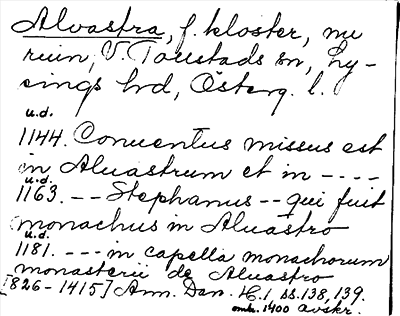 Alvastra, f. kloster, nu
ruin, V. Tollstads sn, Ly-
sings hd, Österg. l.
u.d.
1144. Conuentus missus est
in Aluastrum et in ----
u.d.
1163. -- Stephanus -- qui fuit
monachus in Aluastro
u.d.
1181. --- in capella monachorum
monasterii de Aluastro
[826-1415] Ann. Dan. H. 1. ss. 138, 139.
omkr. 1400 avskr.